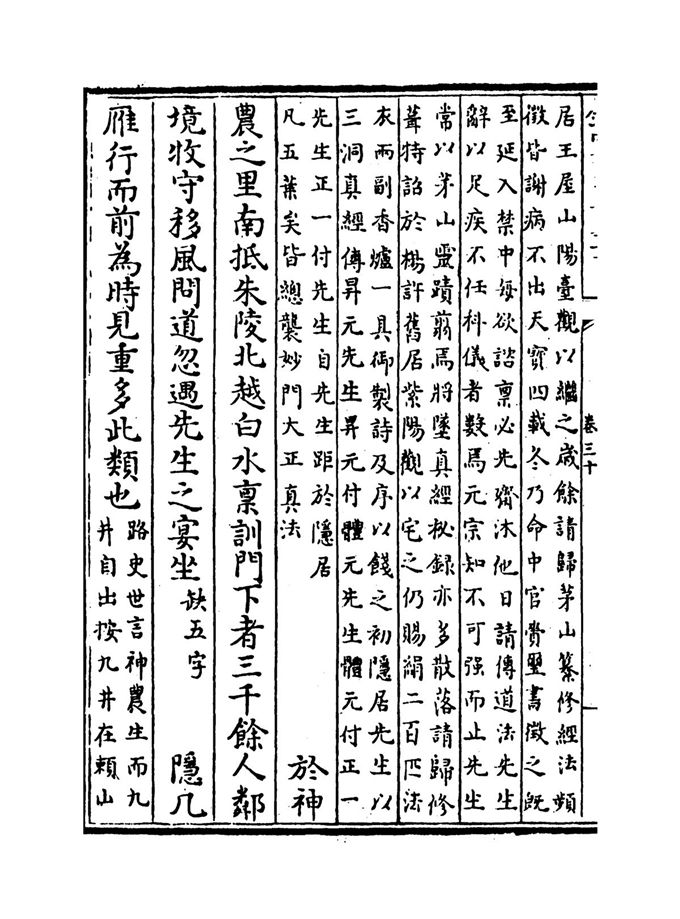 居王屋山陽臺觀以繼之歲餘請歸茅山纂修經法頻
徵皆謝病不出天寳四載冬乃命中官賫璽書徵之既
至延入禁中每欲諮稟必先齋沐他日請傳道法先生
辭以足疾不任科儀者數焉元宗知不可强而止先生
常以茅山靈蹟翦焉將墜真經秘録亦多散落請歸修
葺特詔於楊許舊居紫陽觀以宅之仍賜絹二百匹法
衣兩副香爐一具御製詩及序以餞之初隱居先生以
三洞真經傳昇元先生昇元付體元先生體元付正一
先生正一付先生自先生距於隱居
凡五葉矣皆總襲妙門大正真法
於神
農之里南抵朱陵北越白水稟訓門下者三千餘人鄰
境牧守移風問道忽遇先生之宴坐
缺五字
隱几
雁行而前為時見重多此類也
路史世言神農生而九
井自出按九井在賴山
卷三十